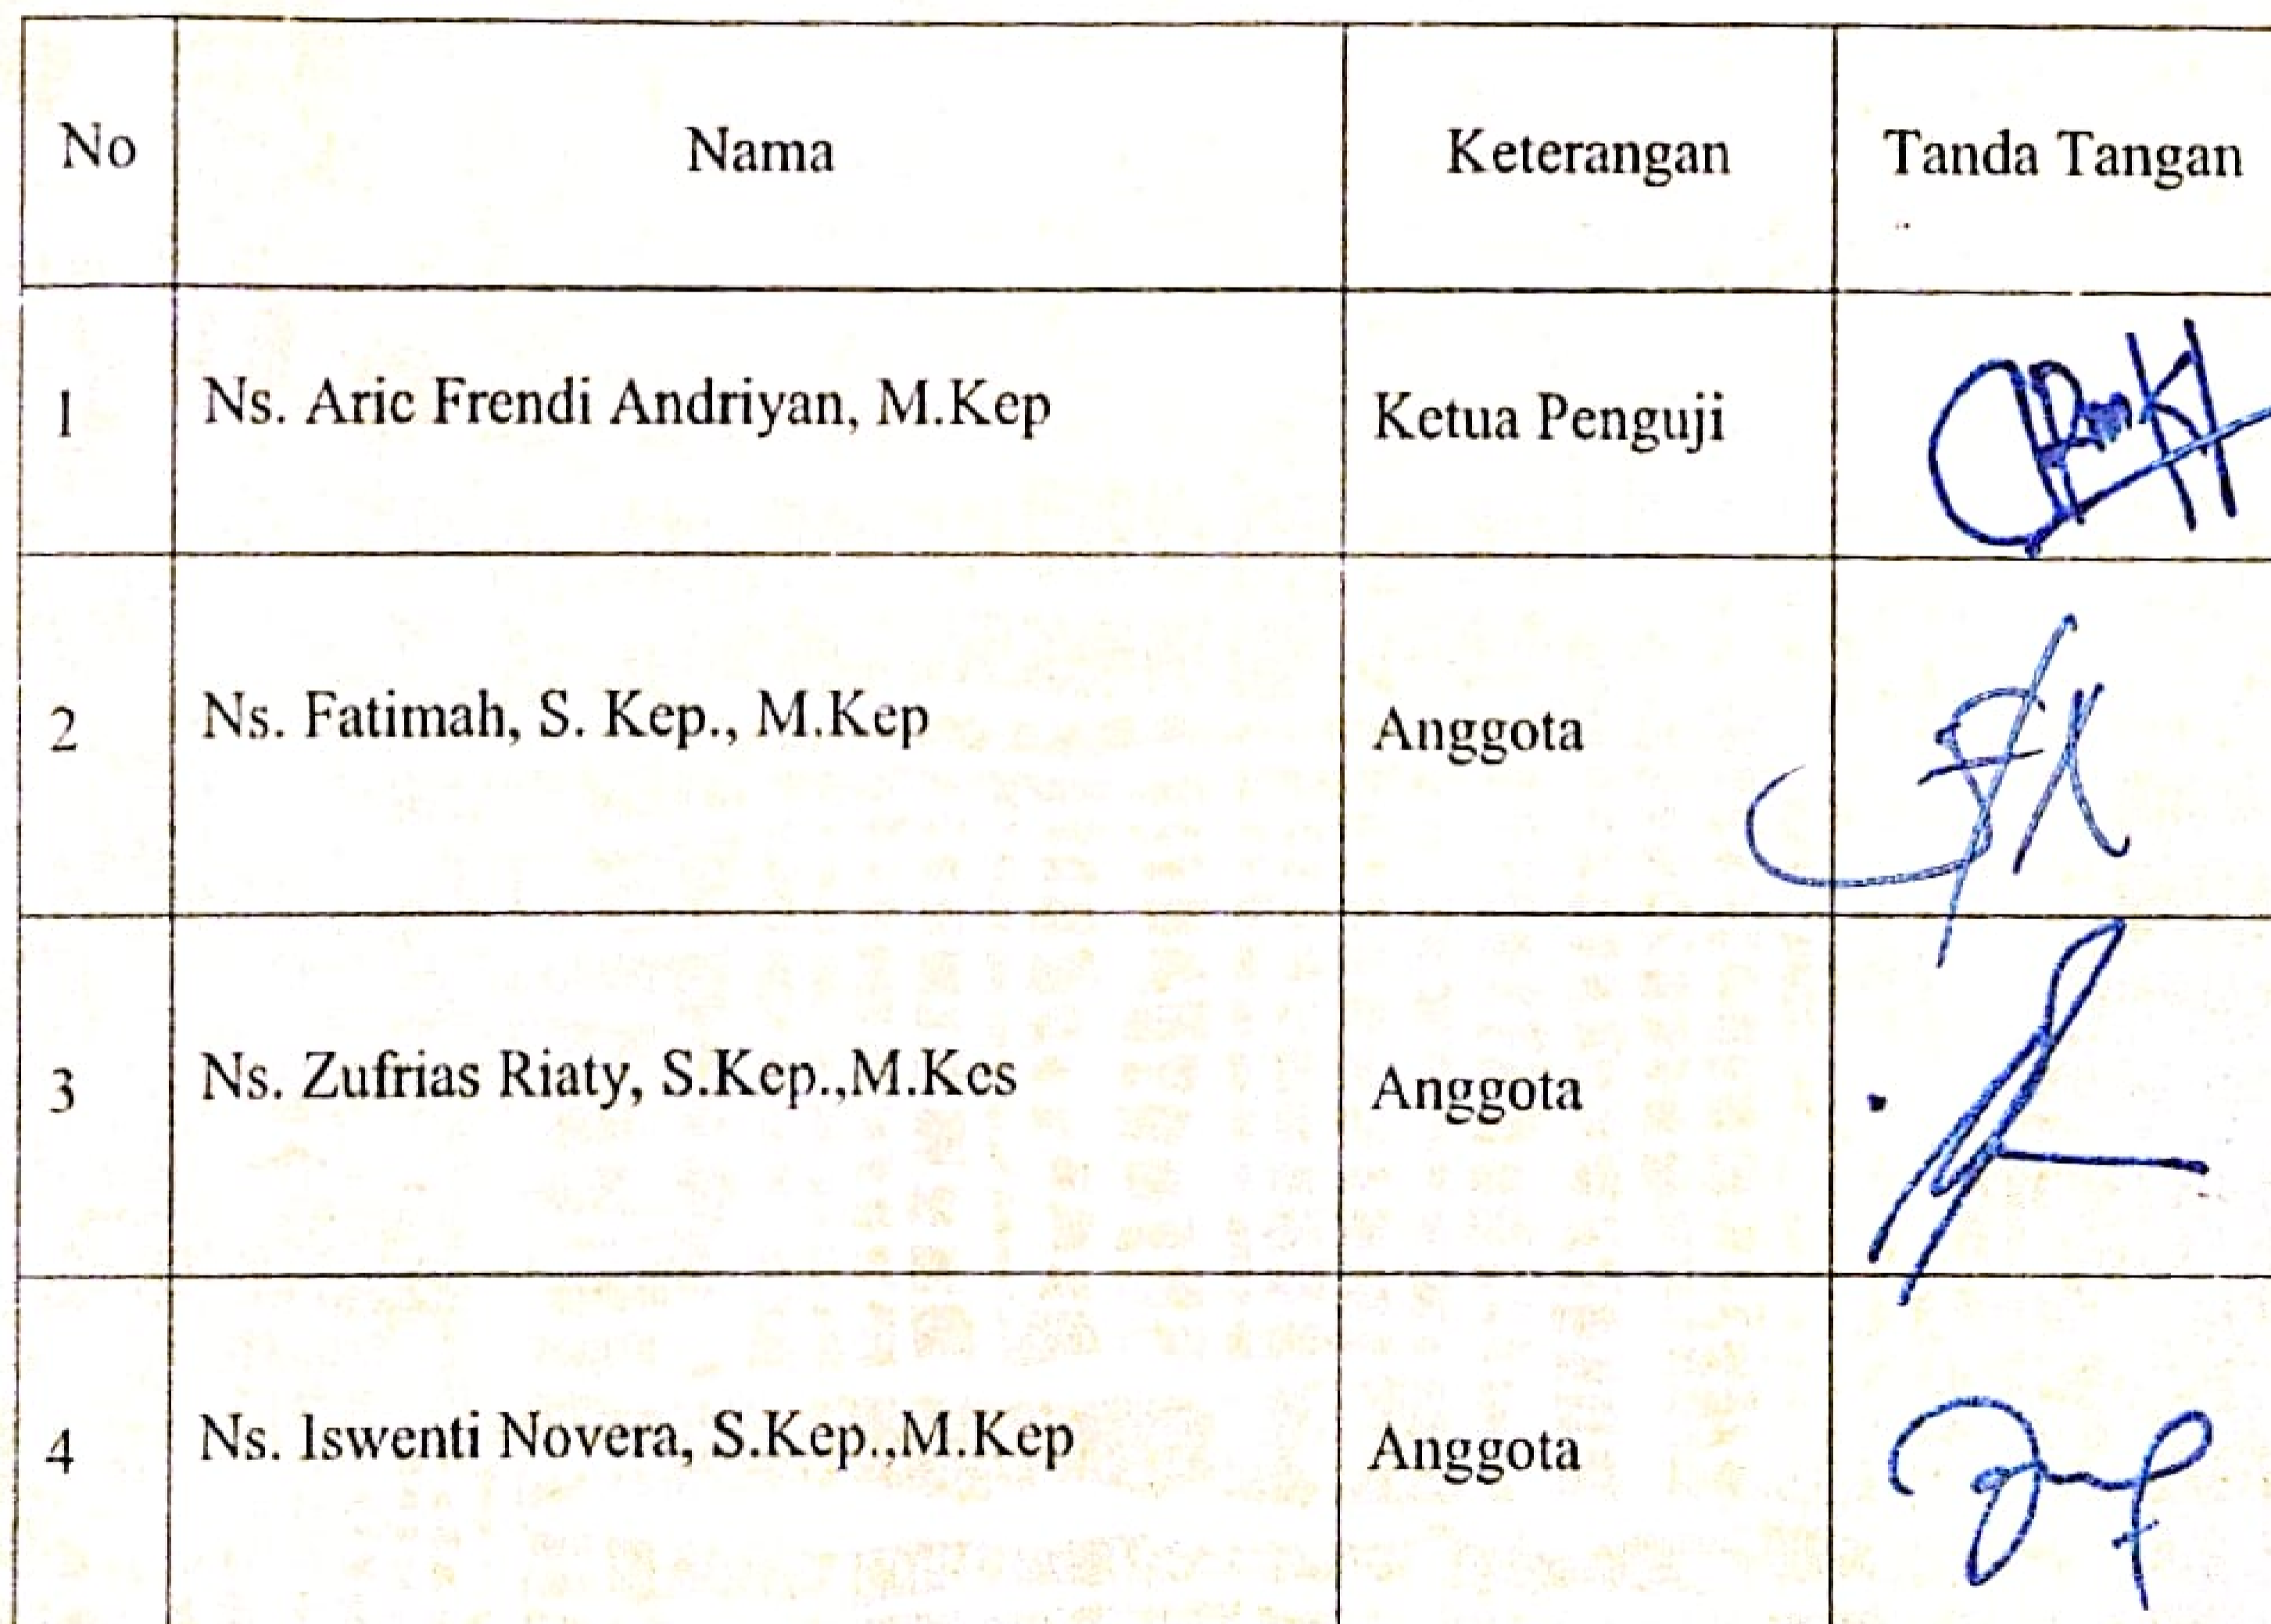 No Nama Keterangan Tanda Tangan
1 Ns. Arie Frendi Andriyan, M.Kep Ketua Penguji
2 Ns. Fatimah, S. Kep., M.Kep Anggota
3 Ns. Zufrias Riaty, S.Kep.,M.Kes Anggota
4 Ns. Iswenti Novera, S.Kep.,M.Kep Anggota